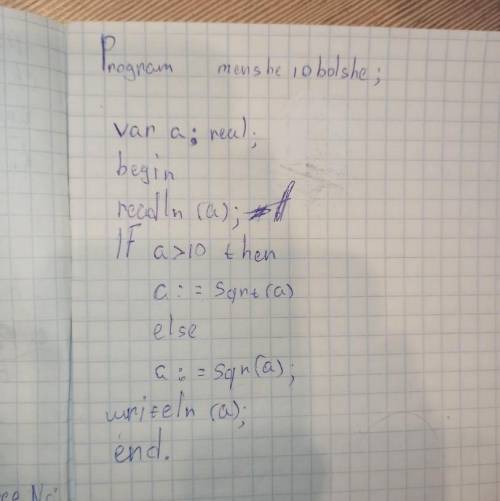 Program menshe 10bolshe;
var a: real;
begin
readln (a);
If a>10 then
a := sqrt(a)
else
a := sqr(a);
writeln (a);
end.